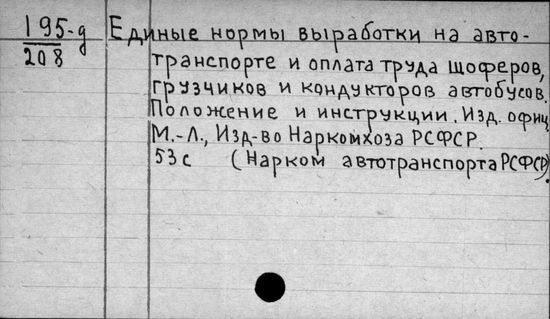 195-д
208
Единые нормы выработки на авто-
транспорте и оплата труда шоферов,
грузчиков и кондукторов автобусов.
Положение и инструкции. Изд. офиц.
М.-Л., Изд-во Наркомхоза РСФСР.
53с (Нарком автотранспорта РСФСР).